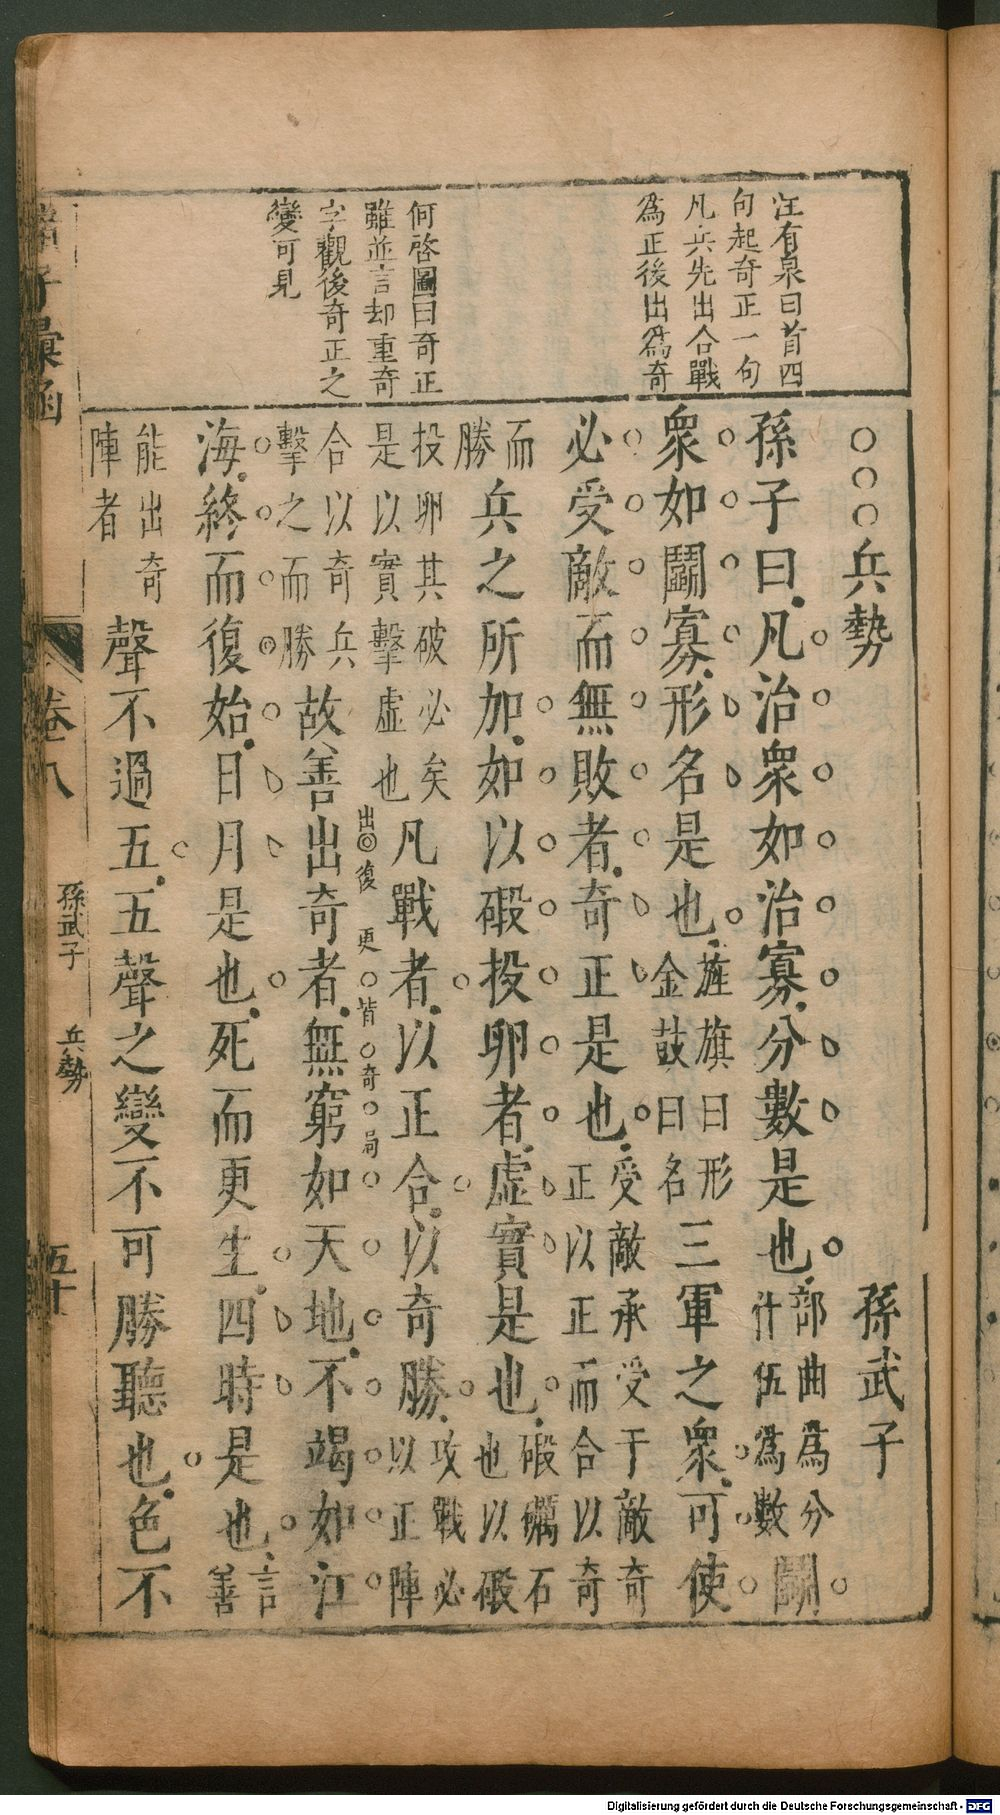 汪有泉曰首四
句起奇正一句
凡兵先出合戰
爲正後出爲奇
何啓圖曰奇正
雖並言却重奇
字觀後奇正之
變可見
○○○兵勢 孫武子
孫子曰凡治衆如治寡分數是也部曲爲分什伍爲數鬭
衆如鬭寡形名是也旌旗曰形金鼓曰名三軍之衆可使
必受敵而無敗者奇正是也受敵承受于敵奇正以正而合以奇
而勝兵之所加如以碫投卵者虛實是也碫礪石也以碫
投卵其破必矣是以實擊虛也凡戰者以正合以奇勝攻戰必以正陣
合以奇兵擊之而勝故善出奇者無窮如天地不竭如江
出復更皆奇局
海終而復始日月是也死而更生四時是也言善
能出奇陣者聲不過五五聲之變不可勝聽也色不
子彙函
卷八
孫武子 兵勢
五十
Digitalisierung gefördert durch die Deutsche Forschungsgemeinschaft - DFG